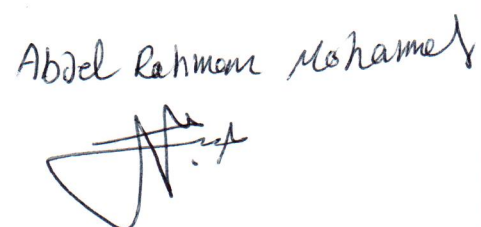 Abdel Rahman Mohamed